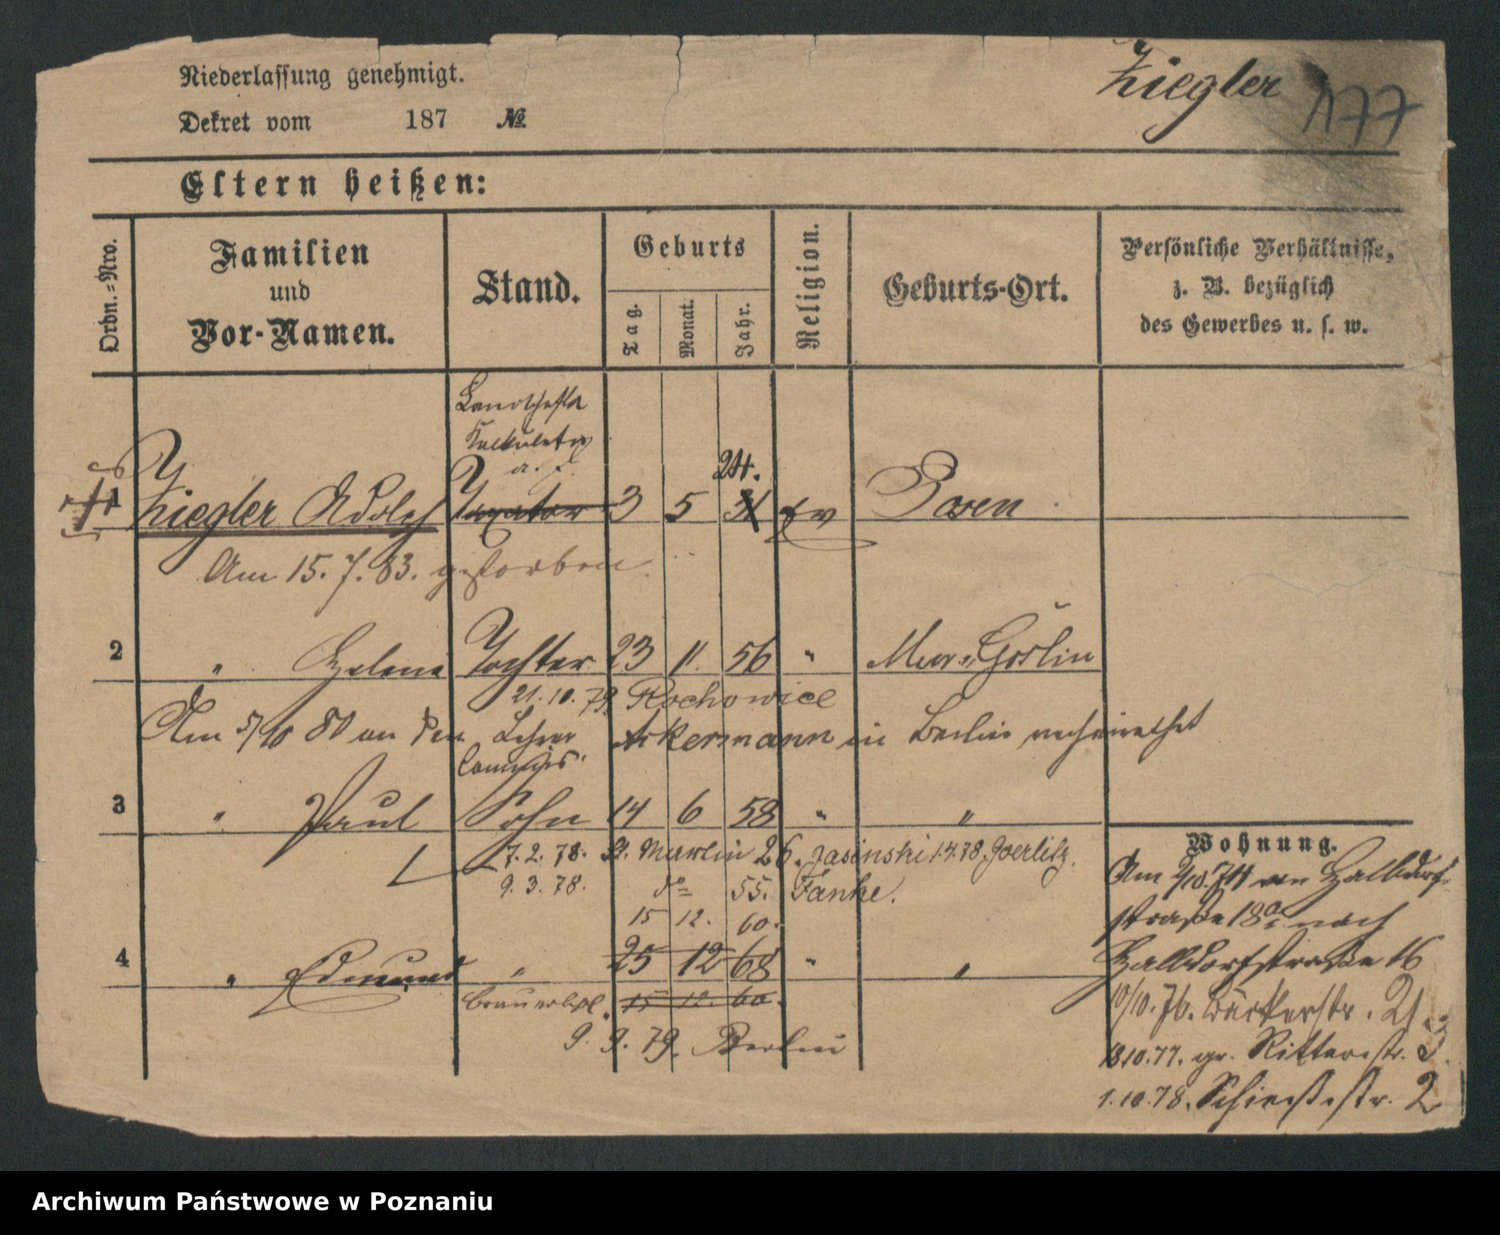 Niederlassung genehmigt.
Ziegler 177
Dekret vom 187 №
Eltern heißen:
Ordn.-Nro.
Familien
und
Vor-Namen.
Stand.
Geburts
Tag.
Monat.
Jahr.
Religion.
Geburts-Ort.
Persönliche Verhältnisse,
z. B. bezüglich
des Gewerbes u. s. w.
Kalkulator
24.
1 Ziegler Adolph Taxator 3 5 31 ev Posen
Am 15. 7. 83. gestorben.
2 " Helene Tochter 23 11. 56 " Mur. Goslin
21. 10. 79. Rochowice
Am 5/10 80 an den Lehrer Ackermann in Berlin verheirathet
Commis
3 " Paul Sohn 14 6 58 " "
7. 2. 78. St. Martin 26. Jasinski 1.4.78. Goerlitz.
9. 3. 78. do 55. Fanke.
15 12. 60.
4 " Edmund " 25 12 68 " "
15 12. 60.
9. 9. 79. Berlin
Wohnung.
Am 2/10 74 von Halldorf-
straße 18a nach
Halldorfstraße 16
10/10. 76. Bäckerstr. 21.
13.10.77. gr. Ritterstr. 3.
1.10.78. Schießstr. 2
Archiwum Państwowe w Poznaniu